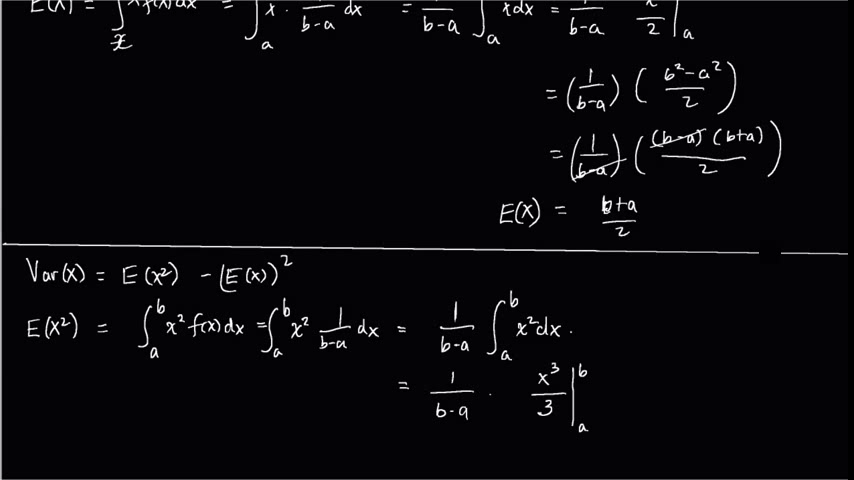 E(X) = ∫ x f(x) dx = ∫_a x · 1/(b-a) dx = 1/(b-a) ∫_a x dx = 1/(b-a) x/2 |_a
= (1/(b-a)) ((b²-a²)/2)
= (1/(b-a)) ((b-a)(b+a)/2)
E(X) = (b+a)/2
Var(X) = E(X²) - (E(X))²
E(X²) = ∫_a^b x² f(x) dx = ∫_a^b x² 1/(b-a) dx = 1/(b-a) ∫_a^b x² dx.
= 1/(b-a) · x³/3 |_a^b